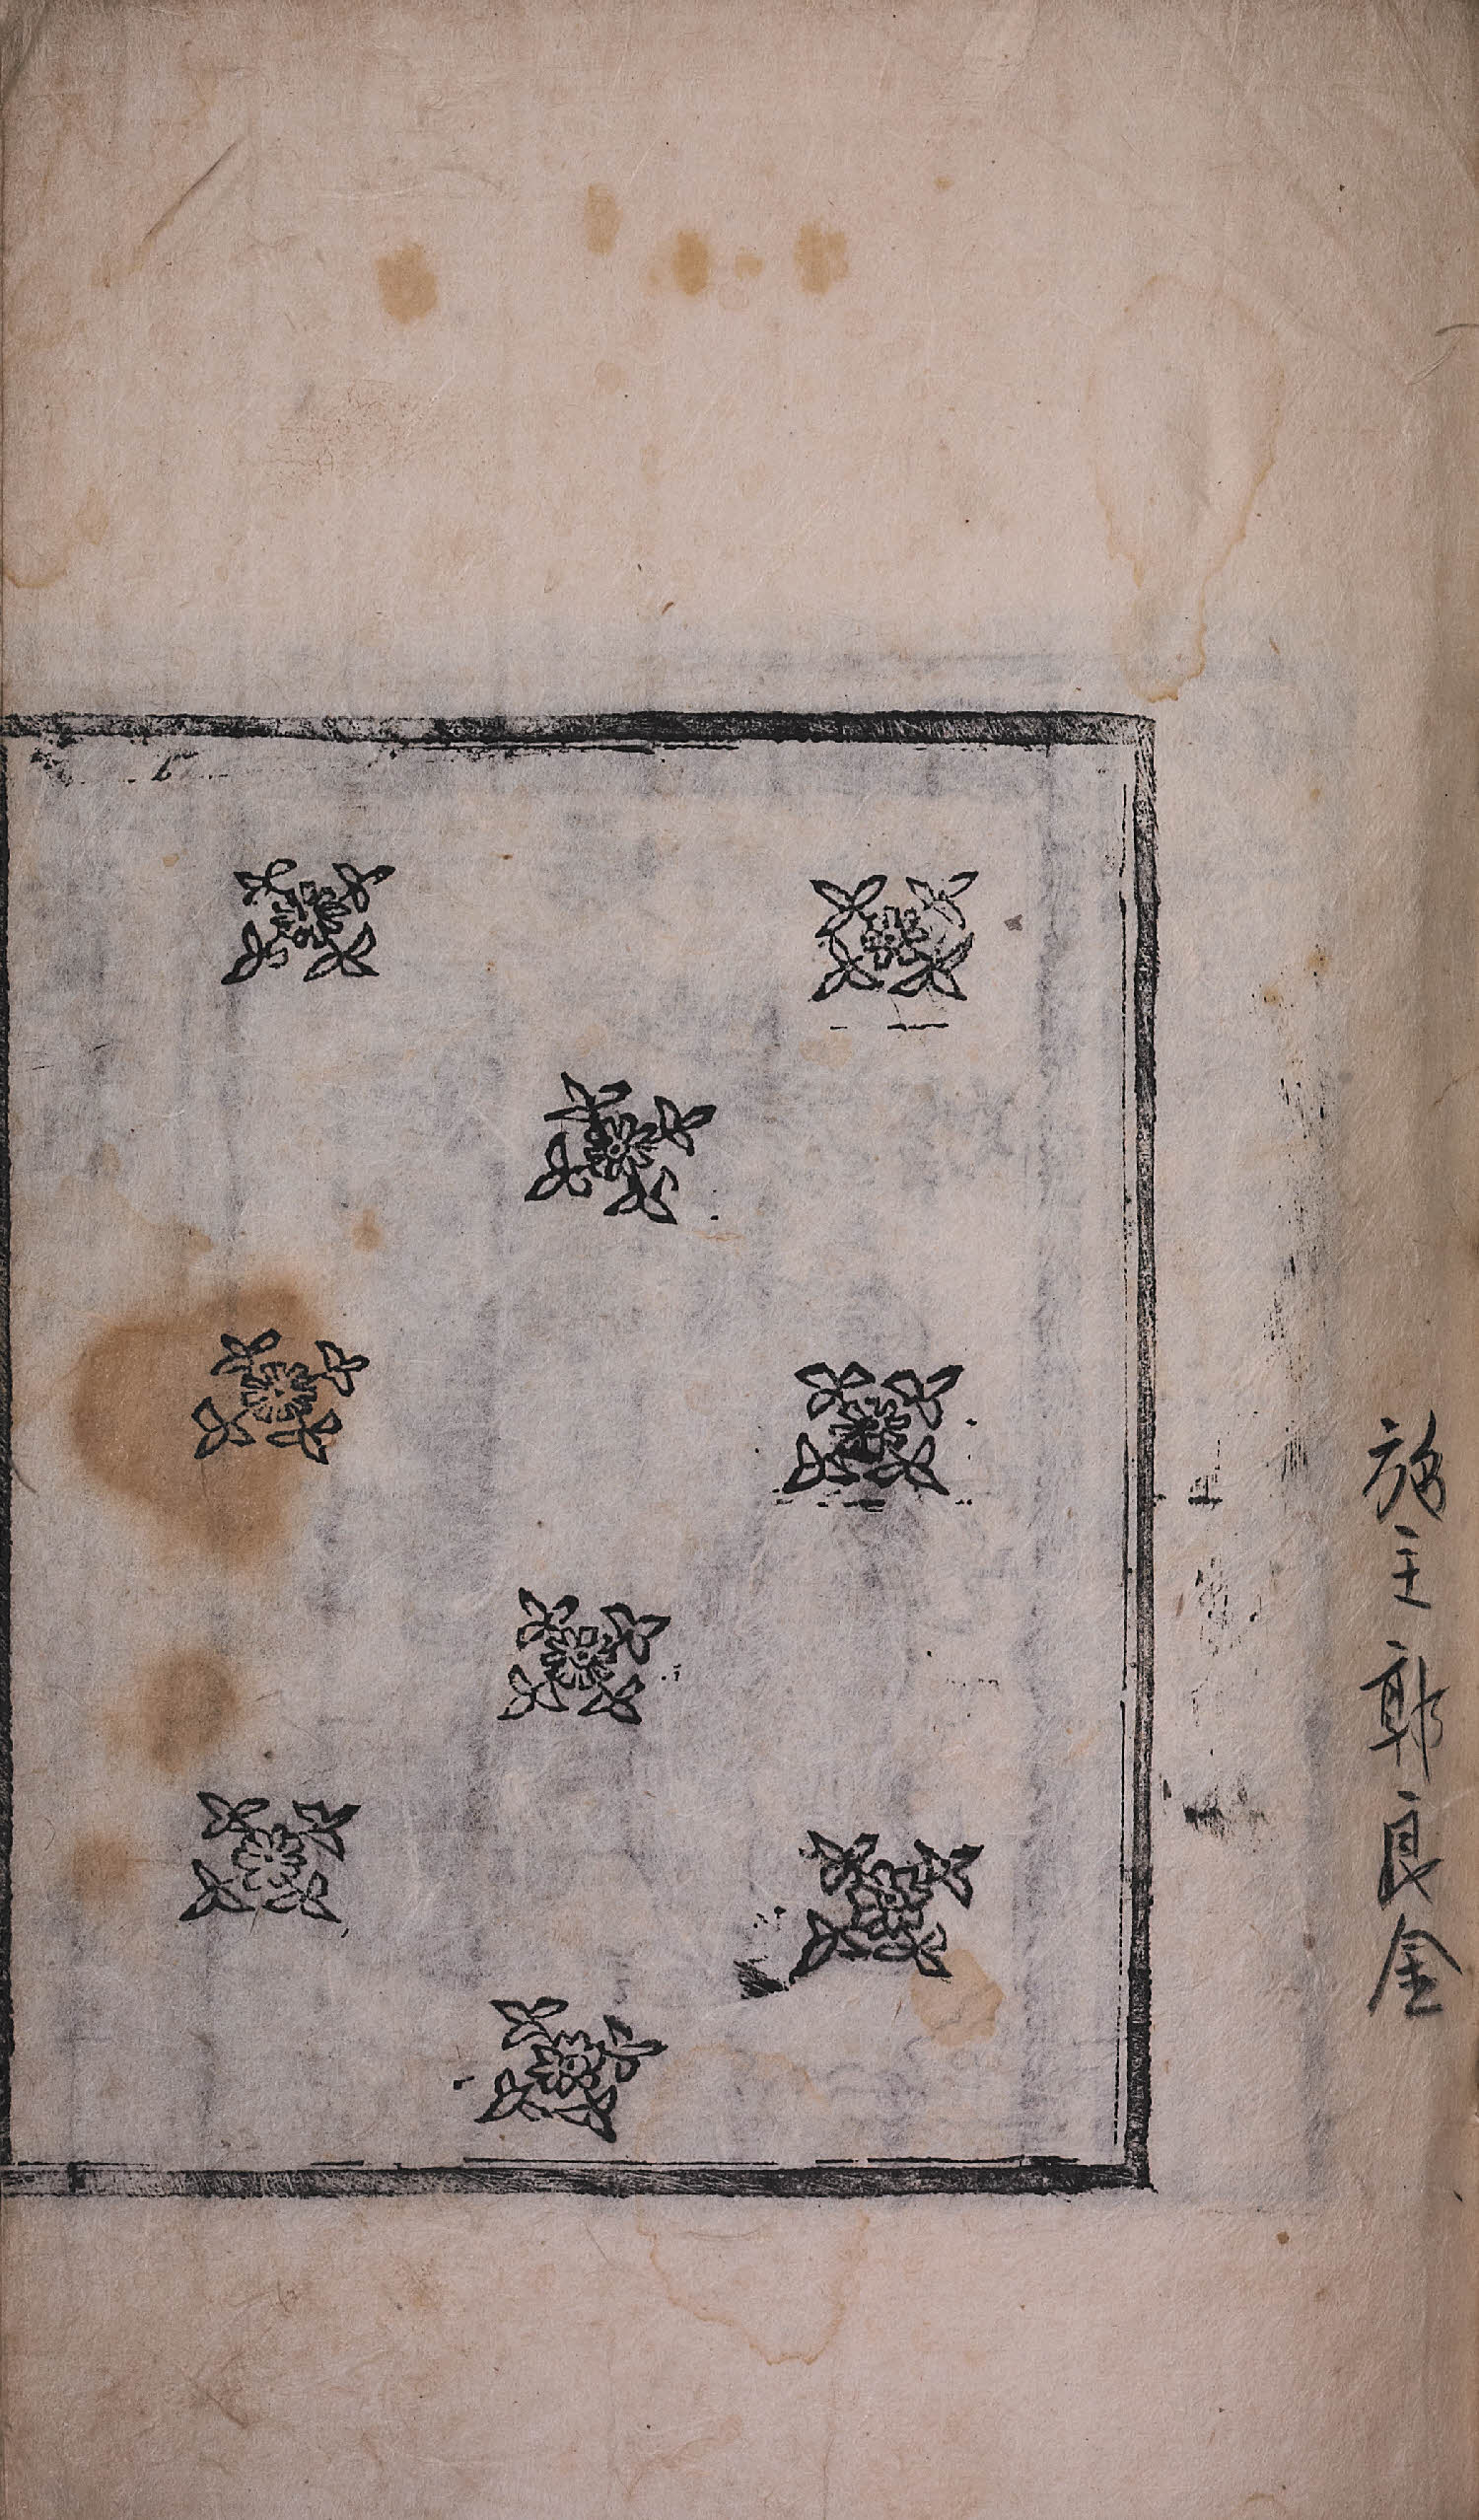 施主郭良金